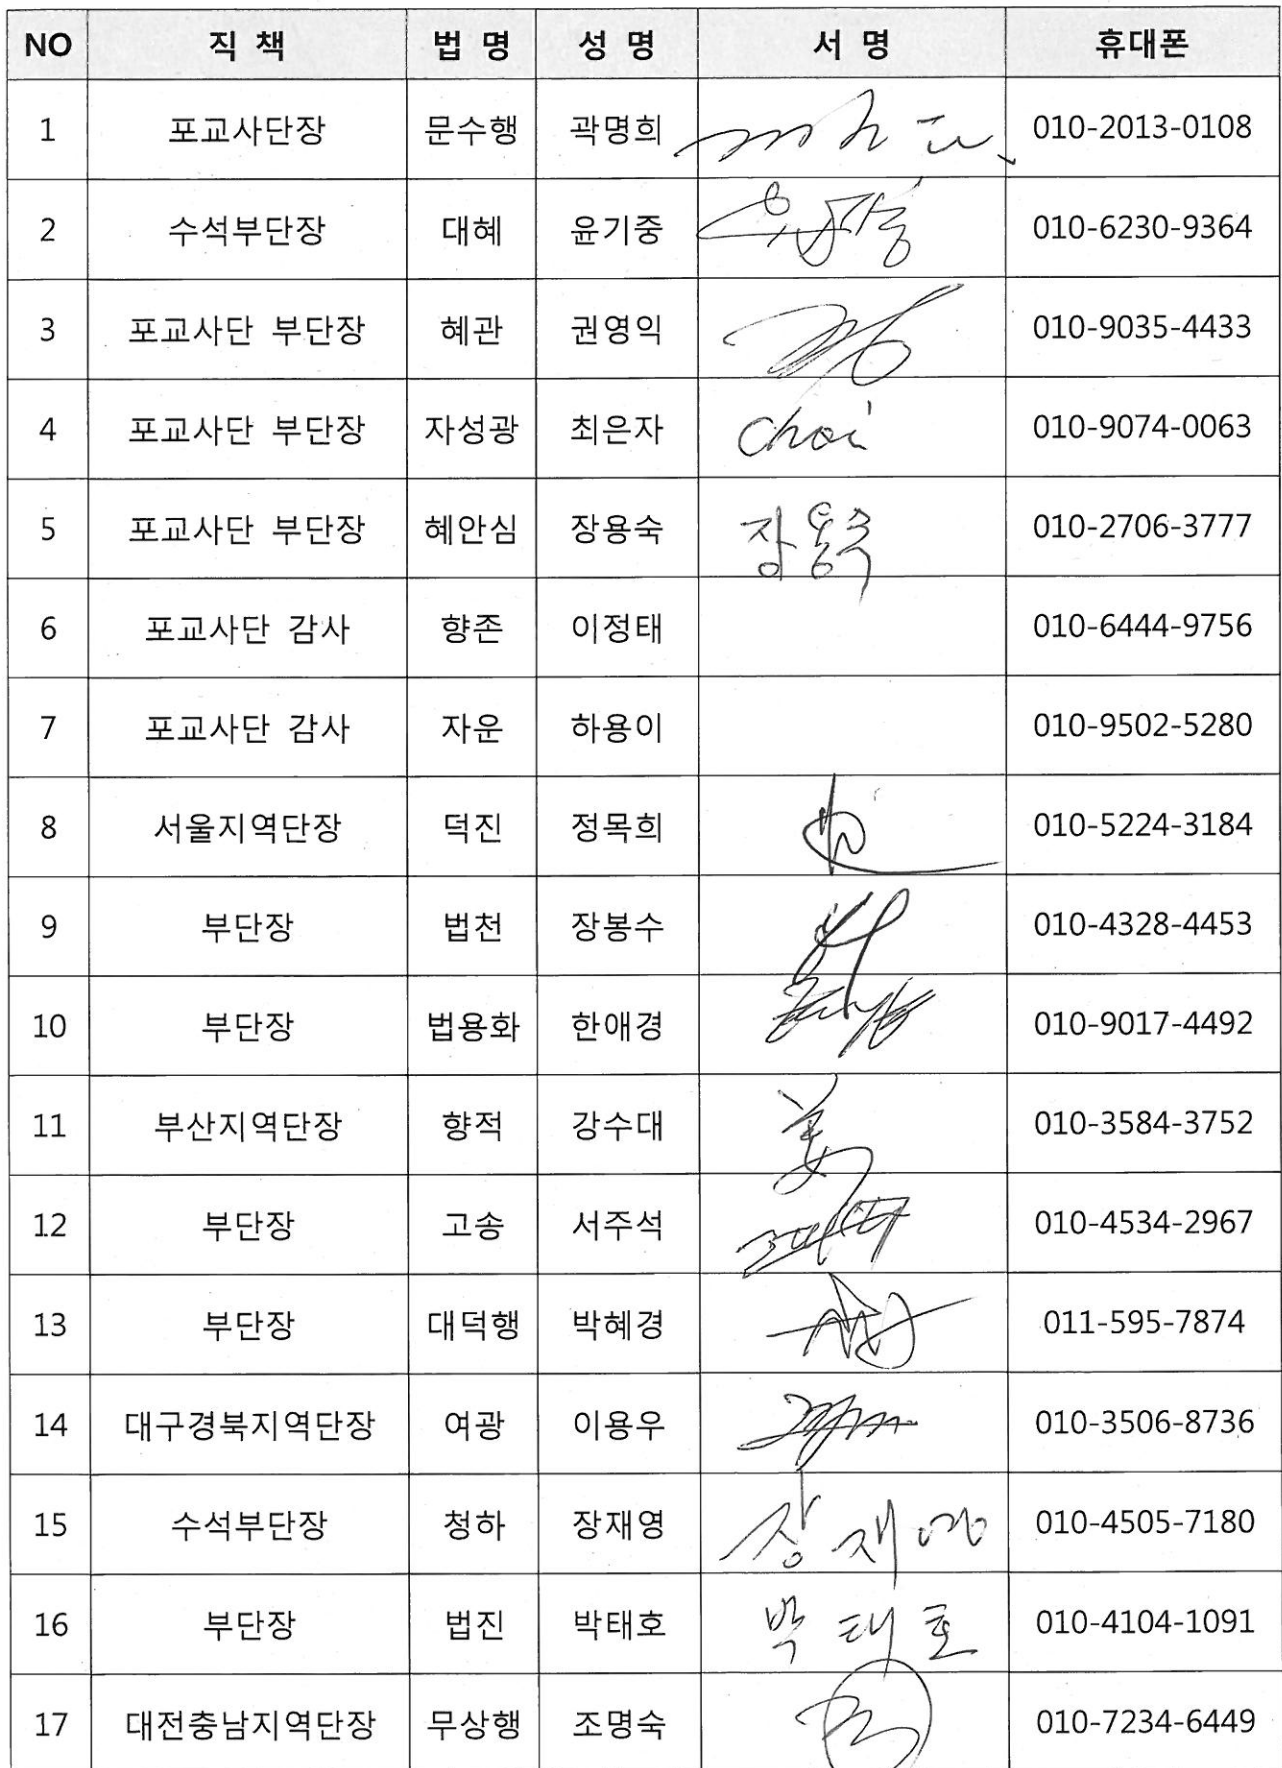 NO 직 책 법 명 성 명 서 명 휴대폰
1 포교사단장 문수행 곽명희 010-2013-0108
2 수석부단장 대혜 윤기중 010-6230-9364
3 포교사단 부단장 혜관 권영익 010-9035-4433
4 포교사단 부단장 자성광 최은자 choi 010-9074-0063
5 포교사단 부단장 혜안심 장용숙 장용숙 010-2706-3777
6 포교사단 감사 향존 이정태 010-6444-9756
7 포교사단 감사 자운 하용이 010-9502-5280
8 서울지역단장 덕진 정목희 010-5224-3184
9 부단장 법천 장봉수 010-4328-4453
10 부단장 법용화 한애경 010-9017-4492
11 부산지역단장 향적 강수대 姜 010-3584-3752
12 부단장 고송 서주석 010-4534-2967
13 부단장 대덕행 박혜경 011-595-7874
14 대구경북지역단장 여광 이용우 010-3506-8736
15 수석부단장 청하 장재영 장재영 010-4505-7180
16 부단장 법진 박태호 박태호 010-4104-1091
17 대전충남지역단장 무상행 조명숙 010-7234-6449